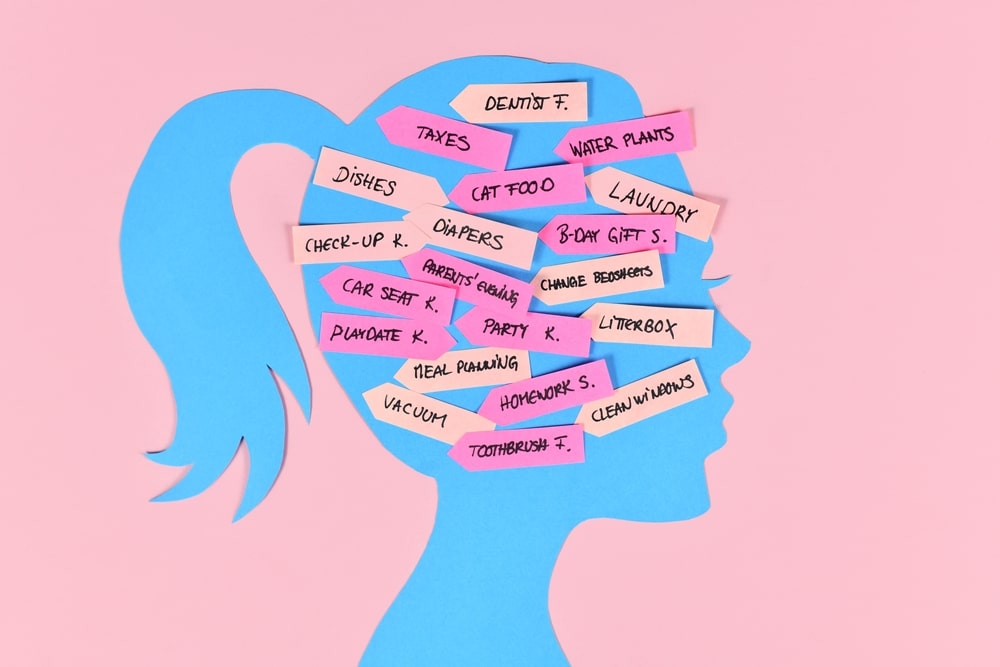 DENTIST F.
TAXES
WATER PLANTS
DISHES
CAT FOOD
LAUNDRY
CHECK-UP K.
DIAPERS
B-DAY GIFT S.
PARENTS' EVENING
CHANGE BEDSHEETS
CAR SEAT K.
PLAYDATE K.
PARTY K.
LITTERBOX
MEAL PLANNING
HOMEWORK S.
CLEAN WINDOWS
VACUUM
TOOTHBRUSH F.